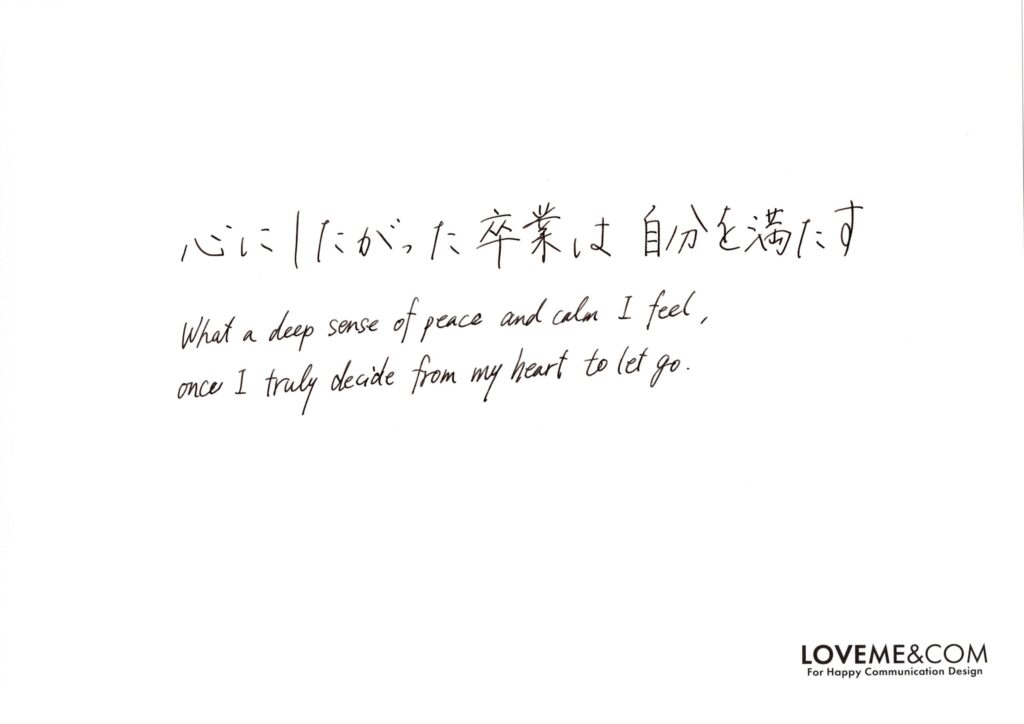 心にしたがった卒業は 自分を満たす
What a deep sense of peace and calm I feel,
once I truly decide from my heart to let go.
LOVEME&COM
For Happy Communication Design